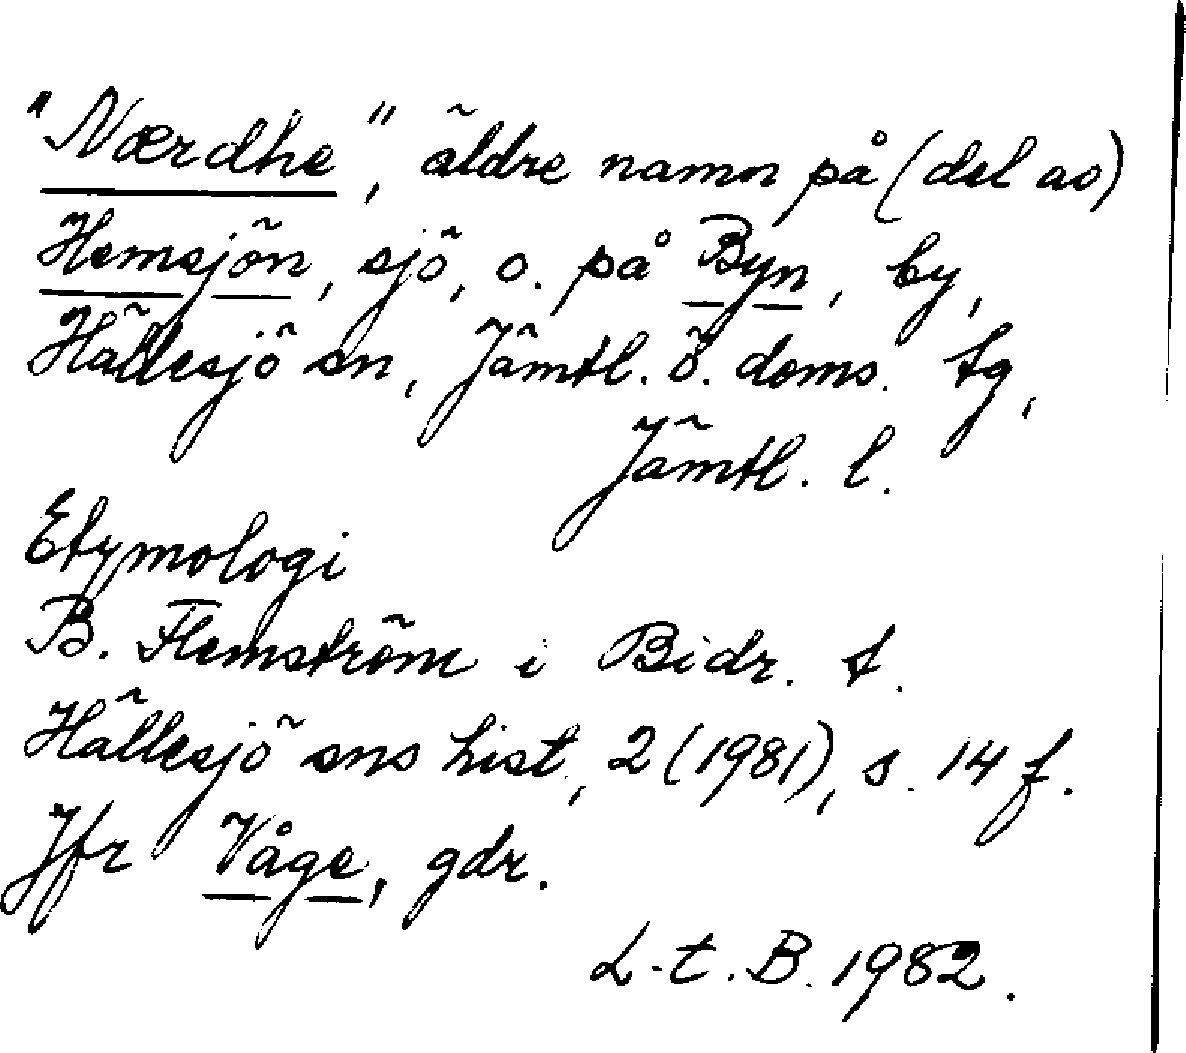 "Nærdhe", äldre namn på (del av)
Hemsjön, sjö, o. på Byn, by,
Hällesjö sn, Jämtl. ö. doms. tg,
Jämtl. l.
Etymologi
B. Flemström i Bidr. t.
Hällesjö sns hist., 2 (1981), s. 14 f.
Jfr Våge, gdr.
L. t. B. 1982.